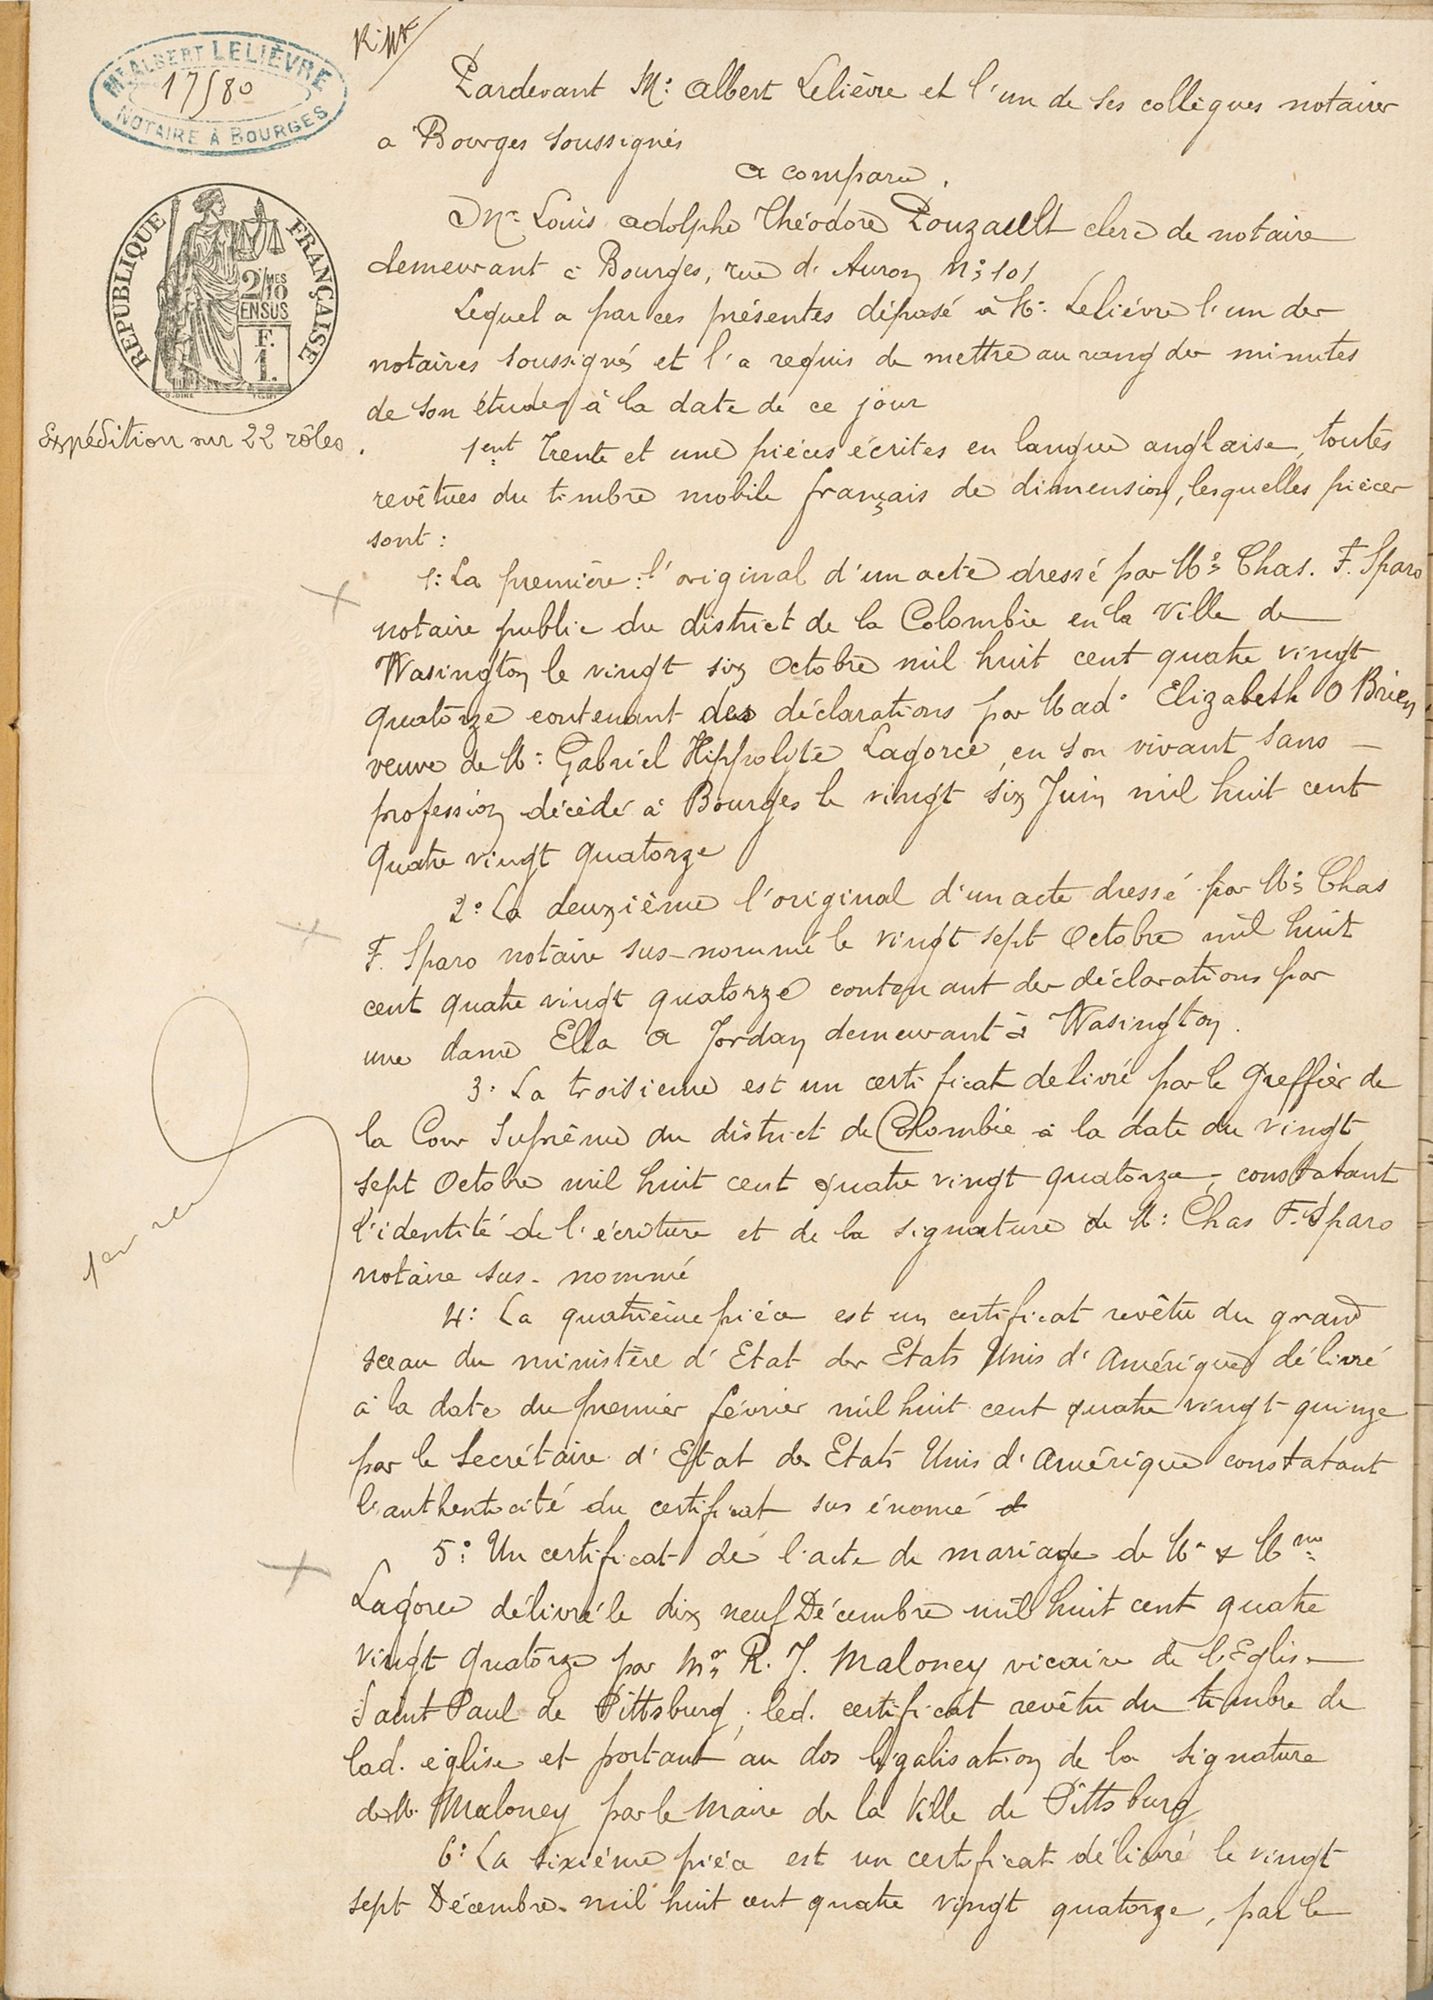 Mᵉ ALBERT LELIÈVRE
17580
NOTAIRE À BOURGES
RÉPUBLIQUE FRANÇAISE
2/10MES
EN SUS
F.
1.
Expédition sur 22 rôles.
Pardevant Mᵉ Albert Lelièvre et l'un de ses collègues notaires
a Bourges soussignés
a comparu.
Mr Louis Adolphe Théodore Pouzault clerc de notaire
demeurant à Bourges, rue d'Auron N° 101
Lequel a par ces présentes déposé à Mᵉ Lelièvre l'un des
notaires soussignés et l'a requis de mettre au rang des minutes
de son étude, à la date de ce jour
1ent Trente et une pièces écrites en langue anglaise, toutes
revêtues du timbre mobile français de dimension, lesquelles pièces
sont :
1° La première : l'original d'un acte dressé par Mᵉ Chas. F. Sparo
notaire public du district de la Colombie en la ville de
Wasington le vingt six Octobre mil huit cent quatre vingt
quatorze contenant des déclarations par Mad° Elizabeth O Brien
veuve de Mr Gabriel Hippolyte Lagorce, en son vivant sans
profession, décédé à Bourges le vingt six Juin mil huit cent
quatre vingt quatorze
2° La deuxième l'original d'un acte dressé par Mᵉ Chas
F. Sparo notaire sus-nommé le vingt sept Octobre mil huit
cent quatre vingt quatorze contenant des déclarations par
une dame Ella A Jordan demeurant à Wasington.
3° La troisieme est un certificat delivré par le Greffier de
la Cour Suprême du district de Colombie à la date du vingt
sept Octobre mil huit cent quatre vingt quatorze, constatant
l'identité de l'écriture et de la signature de Mr Chas F. Sparo
notaire sus-nommé
4° La quatrième pièce est un certificat revêtu du grand
sceau du ministère d'Etat des Etats Unis d'Amérique délivré
à la date du premier février mil huit cent quatre vingt quinze
par le Secrétaire d'Etat des Etats Unis d'Amérique constatant
l'authenticité du certificat sus énoncé
5° Un certificat de l'acte de mariage de Mr & Mme
Lagorce délivré le dix neuf Décembre mil huit cent quatre
vingt quatorze par Mr R. J. Maloney vicaire de l'Eglise
Saint Paul de Pittsburg, led. certificat revêtu du timbre de
lad. église et portant au dos légalisation de la signature
de Mr Maloney par le Maire de la Ville de Pittsburg
6° La sixième pièce est un certificat délivré le vingt
sept Décembre mil huit cent quatre vingt quatorze, par le